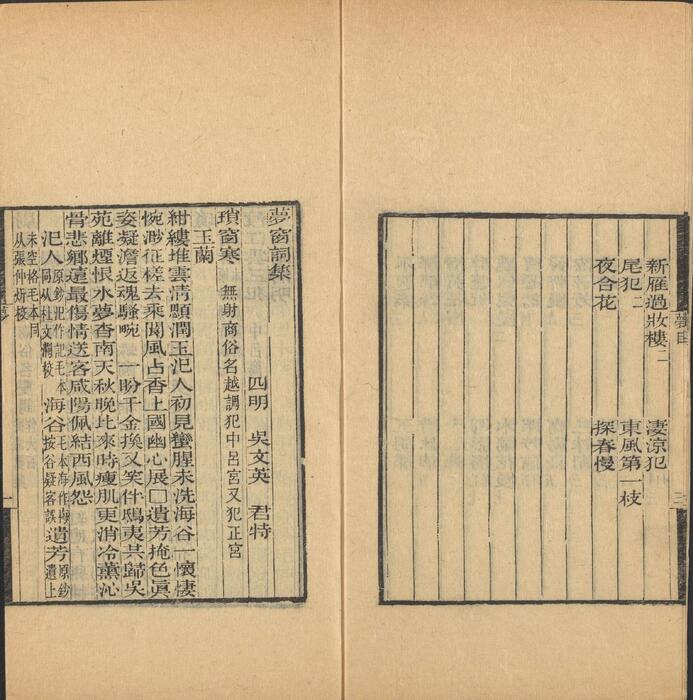 新雁過妝樓二 淒涼犯
尾犯二 東風第一枝
夜合花 探春慢
夢窗詞集
四明 吳文英 君特
瑣窗寒 無射商俗名越調犯中呂宮又犯正宮
玉蘭
紺縷堆雲清顋潤玉汜人初見蠻腥未洗海谷一懷悽
惋渺征槎去乘閬風占香上國幽心展□遺芳掩色眞
姿凝澹返魂騷畹 一盼千金換又笑伴鴟夷共歸吳
苑離煙恨水夢杳南天秋晚比來時瘦肌更消冷薰沁
骨悲鄉遠最傷情送客咸陽佩結西風怨
汜人原鈔汜作記毛本同从杜文瀾校 海谷毛本海作梅按谷疑客誤 遺芳原鈔遺上
未空格毛本同从張仲炘校